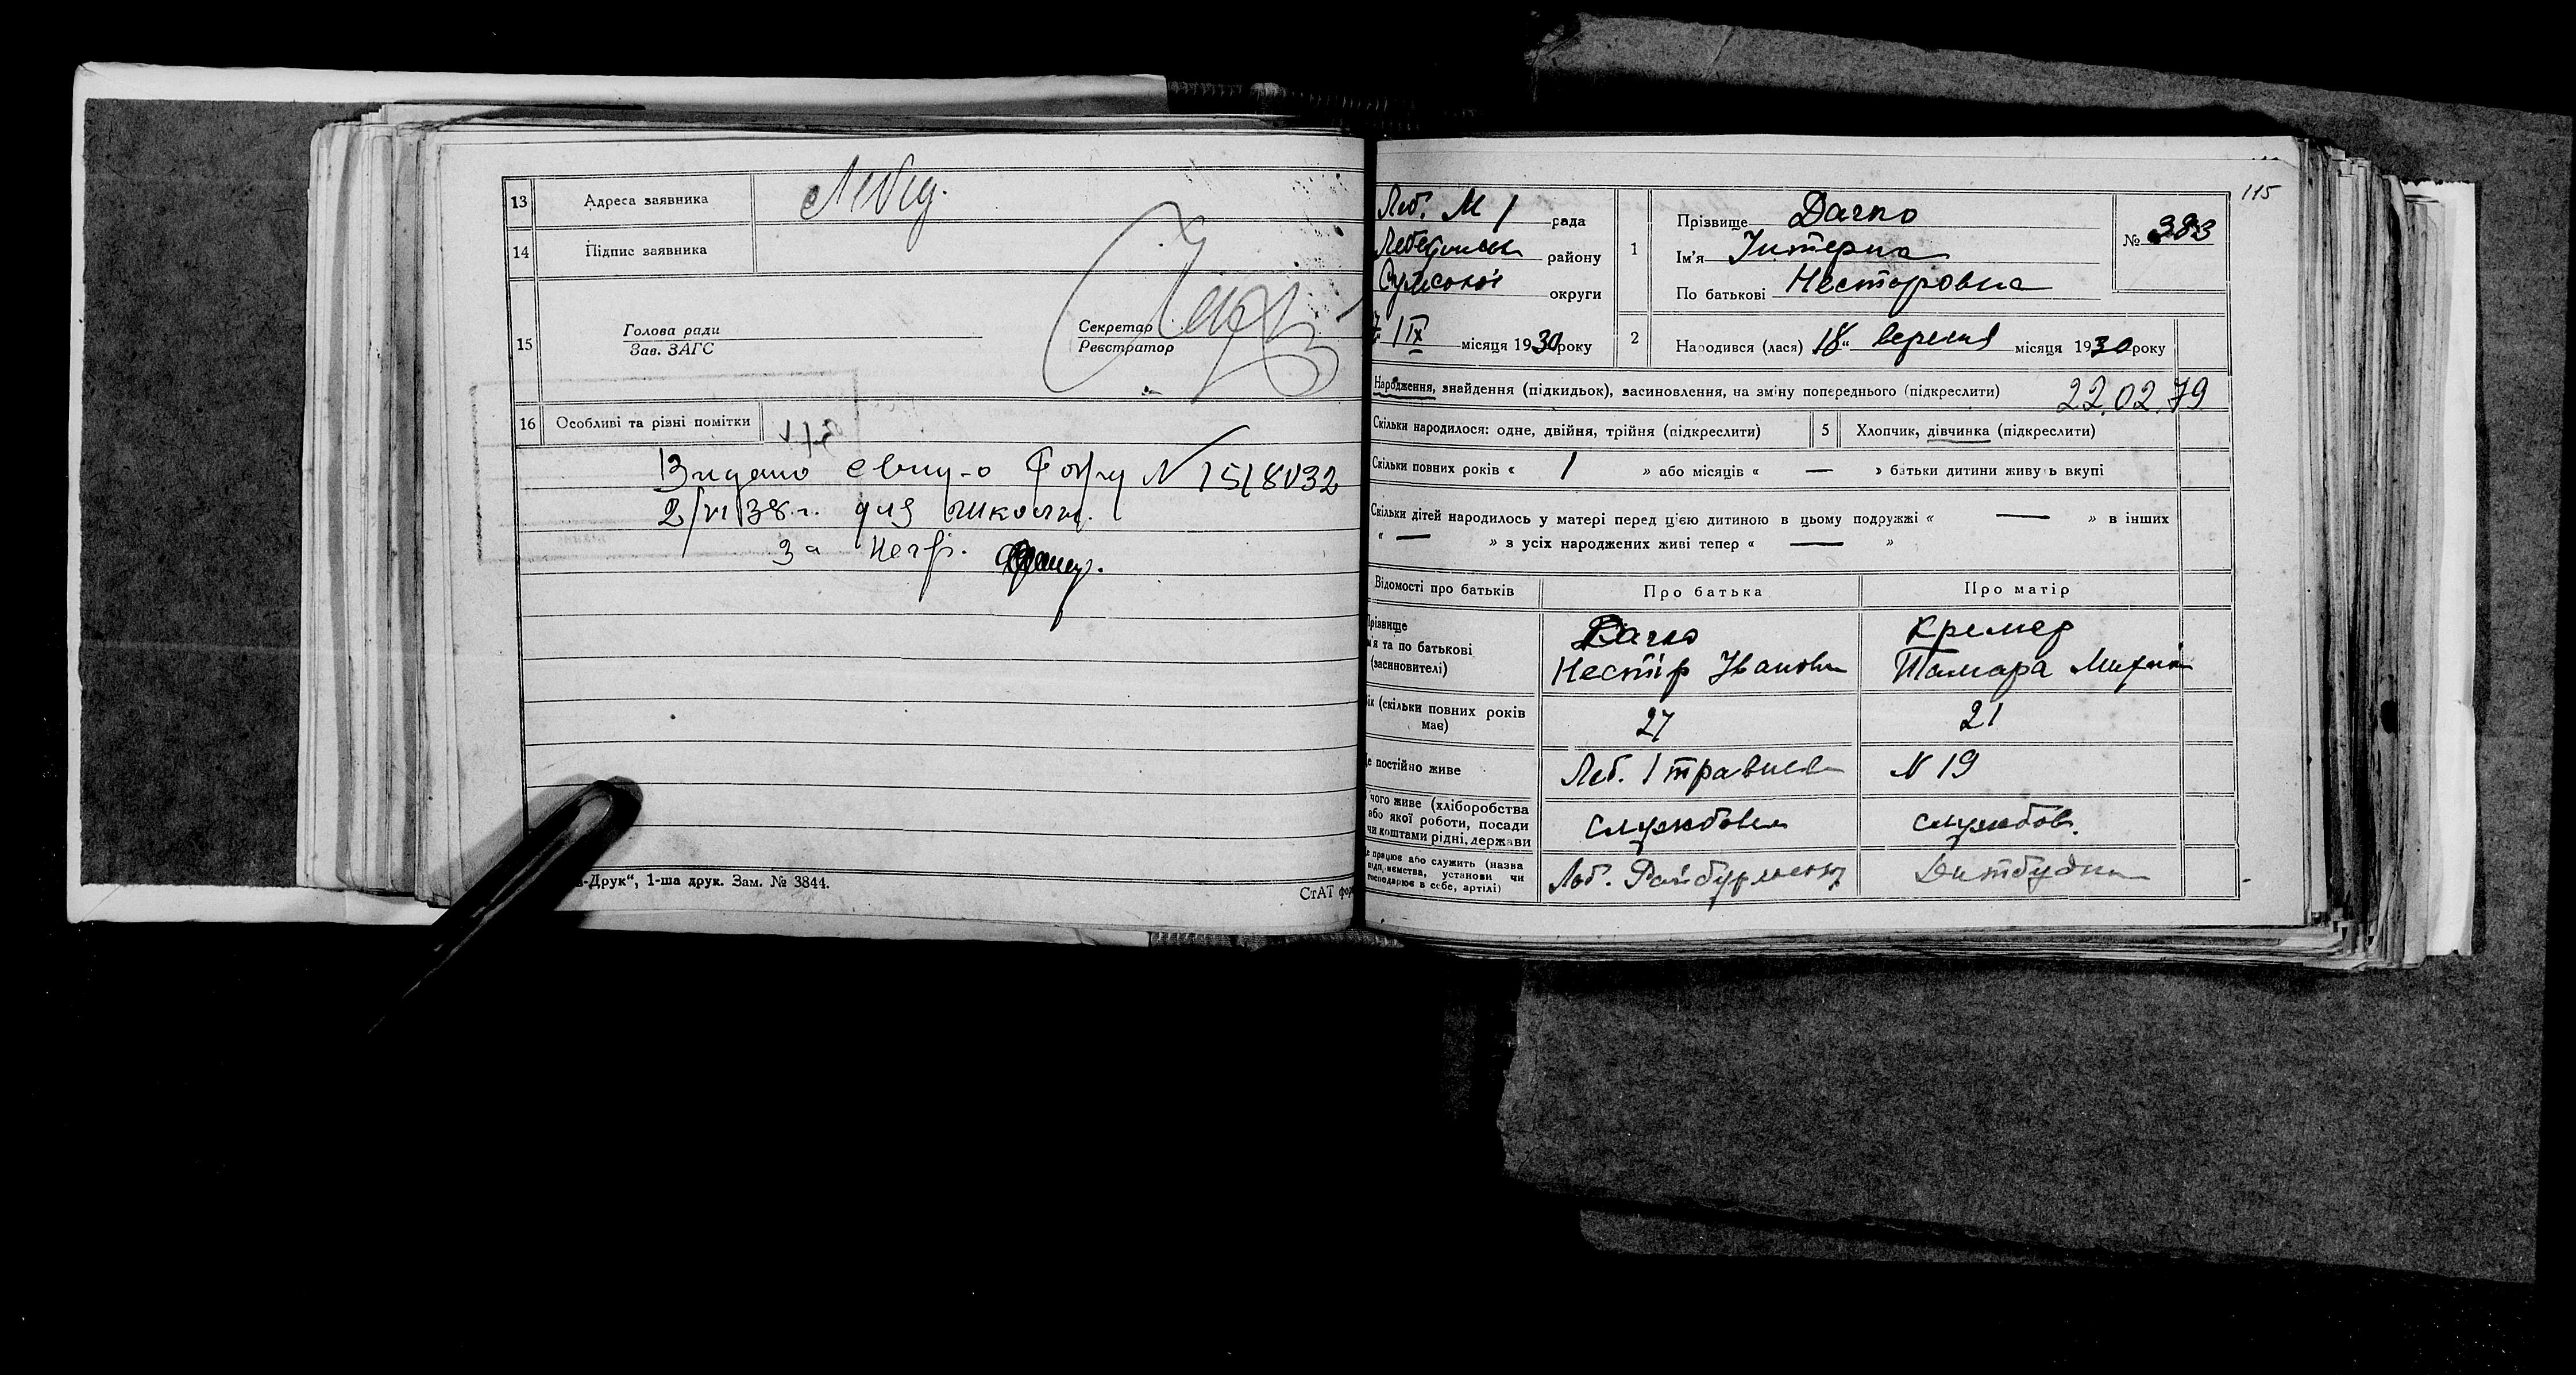 13 Адреса заявника Лебед.
14 Підпис заявника
15 Голова ради
Зав. ЗАГС
Секретар
Реєстратор
16 Особливі та різні помітки
Видано свид-о N 1518032
2/VI 38 г. для школы.
За
-Друк“, 1-ша друк. Зам. № 3844.
СтАТ фор
115
Леб. М рада
Лебединськ району
Сумської округи
IX місяця 1930 року
1 Прізвище Дачко
Ім'я Інтерна
По батькові Несторовна
№ 383
2 Народився (лася) 18 “ вересня місяця 1930 року
Народження, знайдення (підкидьок), васиновлення, на зміну попереднього (підкреслити) 22.02.79
Скільки народилося: одне, двійня, трійня (підкреслити)
5 Хлопчик, дівчинка (підкреслити)
Скільки повних років « 1 » або місяців « — » батьки дитини живуть вкупі
Скільки дітей народилось у матері перед цією дитиною в цьому подружжі « — » в інших
« — » з усіх народжених живі тепер « — »
Відомості про батьків
Про батька
Про матір
Прізвище
м'я та по батькові
(васиновителі)
Дачко
Нестір Іванови
Кремер
Тамара Михай
ік (скільки повних років
має)
27
21
е постійно живе
Леб. 1 травнева
N 19
чого живе (хліборобства
або якої роботи, посади
чи коштами рідні, держави
службовець
службов.
е працює або служить (назва
підприємства, установи чи
господарює в себе, артілі)
Леб.
Дитбудин